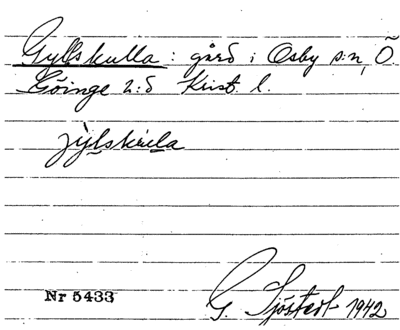 Gyllskulla : gård i Osby s:n, Ö.
Göinge h:d Krist. l.
jylskula
Nr 5433
G. Sjöstedt 1942